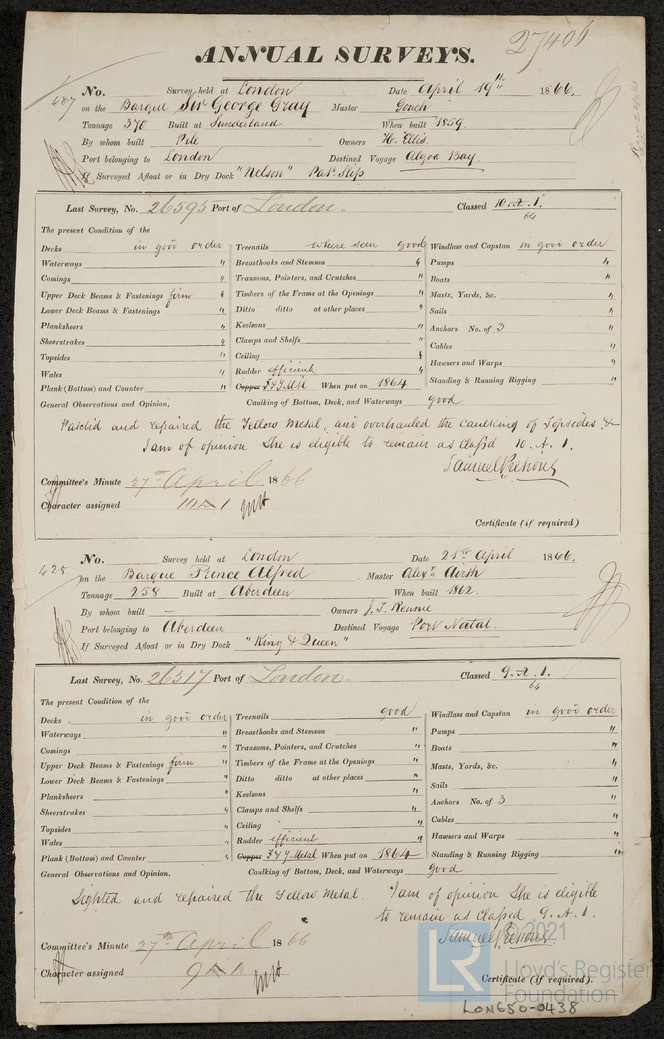 27406
ANNUAL SURVEYS.
407 No. Survey held at London Date April 19th 1866.
on the Barque Sir George Gray Master Gouch
Tonnage 370 Built at Sunderland When built 1859.
By whom built Pile Owners H. Ellis.
Port belonging to London Destined Voyage Algoa Bay
If Surveyed Afloat or in Dry Dock "Nelson" Pat. Slip
Last Survey, No. 26595 Port of London. Classed 10.A.1.
64
The present Condition of the
Decks in good order Treenails where seen good Windlass and Capstan in good order
Waterways " Breasthooks and Stemson " Pumps "
Comings " Transoms, Pointers, and Crutches " Boats "
Upper Deck Beams & Fastenings firm " Timbers of the Frame at the Openings " Masts, Yards, &c. "
Lower Deck Beams & Fastenings " Ditto ditto at other places " Sails "
Planksheers " Keelsons " Anchors No. of 3 "
Sheerstrakes " Clamps and Shelfs " Cables "
Topsides " Ceiling " Hawsers and Warps "
Wales " Rudder efficient Standing & Running Rigging "
Plank (Bottom) and Counter " Copper F & Y Mtl When put on 1864
General Observations and Opinion, Caulking of Bottom, Deck, and Waterways good
Patch'd and repaired the Yellow Metal, and overhauled the caulking of Topsides &
I am of opinion She is eligible to remain as class'd 10. A. 1.
Committee's Minute 27th April 1866
Character assigned 10 A 1
Certificate (if required)
425 No. Survey held at London Date 21st April 1866.
on the Barque Prince Alfred Master Alexr. Airth
Tonnage 258 Built at Aberdeen When built 1862.
By whom built – Owners J. T. Rennie
Port belonging to Aberdeen Destined Voyage Port Natal.
If Surveyed Afloat or in Dry Dock "King & Queen"
Last Survey, No. 26517 Port of London. Classed 9.A.1.
64
The present Condition of the
Decks in good order Treenails good Windlass and Capstan in good order
Waterways " Breasthooks and Stemson " Pumps "
Comings " Transoms, Pointers, and Crutches " Boats "
Upper Deck Beams & Fastenings firm " Timbers of the Frame at the Openings " Masts, Yards, &c. "
Lower Deck Beams & Fastenings " Ditto ditto at other places " Sails "
Planksheers " Keelsons " Anchors No. of 3 "
Sheerstrakes " Clamps and Shelfs " Cables "
Topsides " Ceiling " Hawsers and Warps "
Wales " Rudder efficient Standing & Running Rigging "
Plank (Bottom) and Counter " Copper F & Y Metal When put on 1864
General Observations and Opinion, Caulking of Bottom, Deck, and Waterways good
Sighted and repaired the Yellow Metal. I am of opinion She is eligible
to remain as classed 9.A.1.
Committee's Minute 27th April 1866
Character assigned 9 A 1
Certificate (if required).
LR © 2021
Lloyd's Register
Foundation
LON650-0438